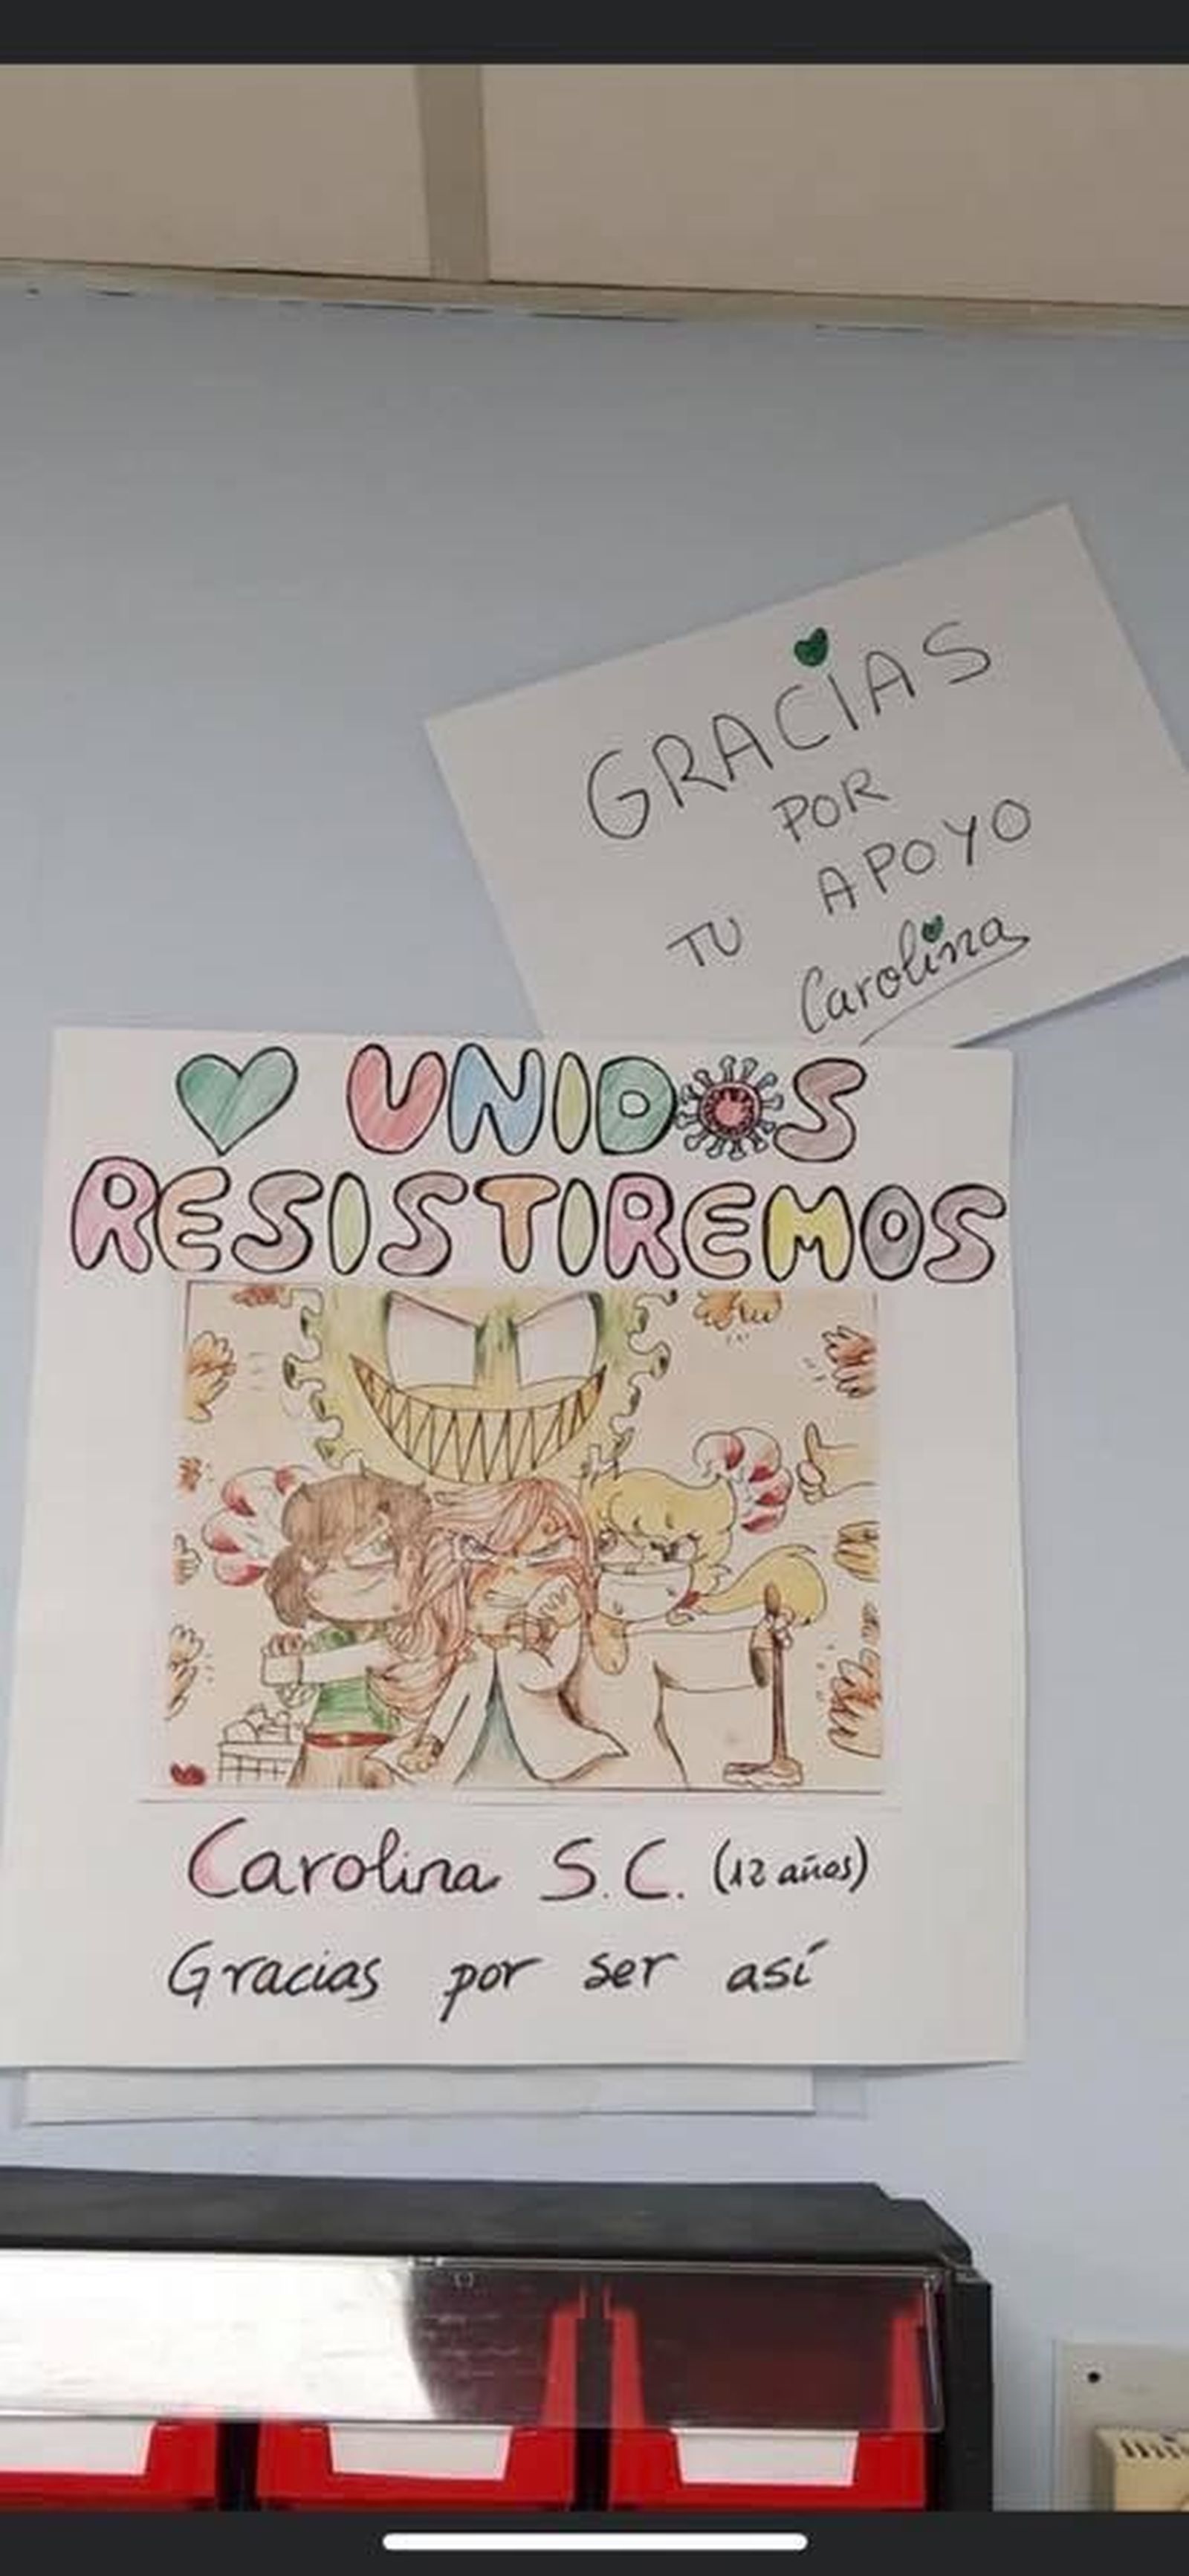 GRACIAS
POR
TU APOYO
Carolina
UNIDOS
RESISTIREMOS
Carolina S.C. (12 años)
Gracias por ser así